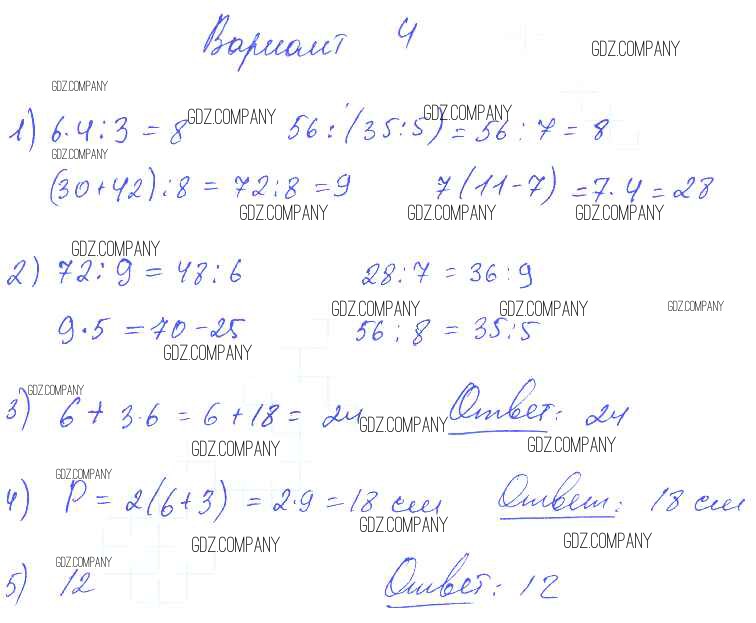 Вариант 4
GDZ.COMPANY
GDZ.COMPANY
1) 6·4:3 = 8 GDZ.COMPANY 56:(35:5) = 56:7 = 8 GDZ.COMPANY
GDZ.COMPANY
(30+42):8 = 72:8 = 9 7(11-7) = 7·4 = 28
GDZ.COMPANY GDZ.COMPANY GDZ.COMPANY
GDZ.COMPANY
2) 72:9 = 48:6 28:7 = 36:9
GDZ.COMPANY GDZ.COMPANY GDZ.COMPANY
9·5 = 70-25 56:8 = 35:5
GDZ.COMPANY
GDZ.COMPANY
3) 6 + 3·6 = 6 + 18 = 24 GDZ.COMPANY Ответ: 24
GDZ.COMPANY GDZ.COMPANY
GDZ.COMPANY
4) P = 2(6+3) = 2·9 = 18 см Ответ: 18 см
GDZ.COMPANY
GDZ.COMPANY GDZ.COMPANY
GDZ.COMPANY
5) 12 Ответ: 12